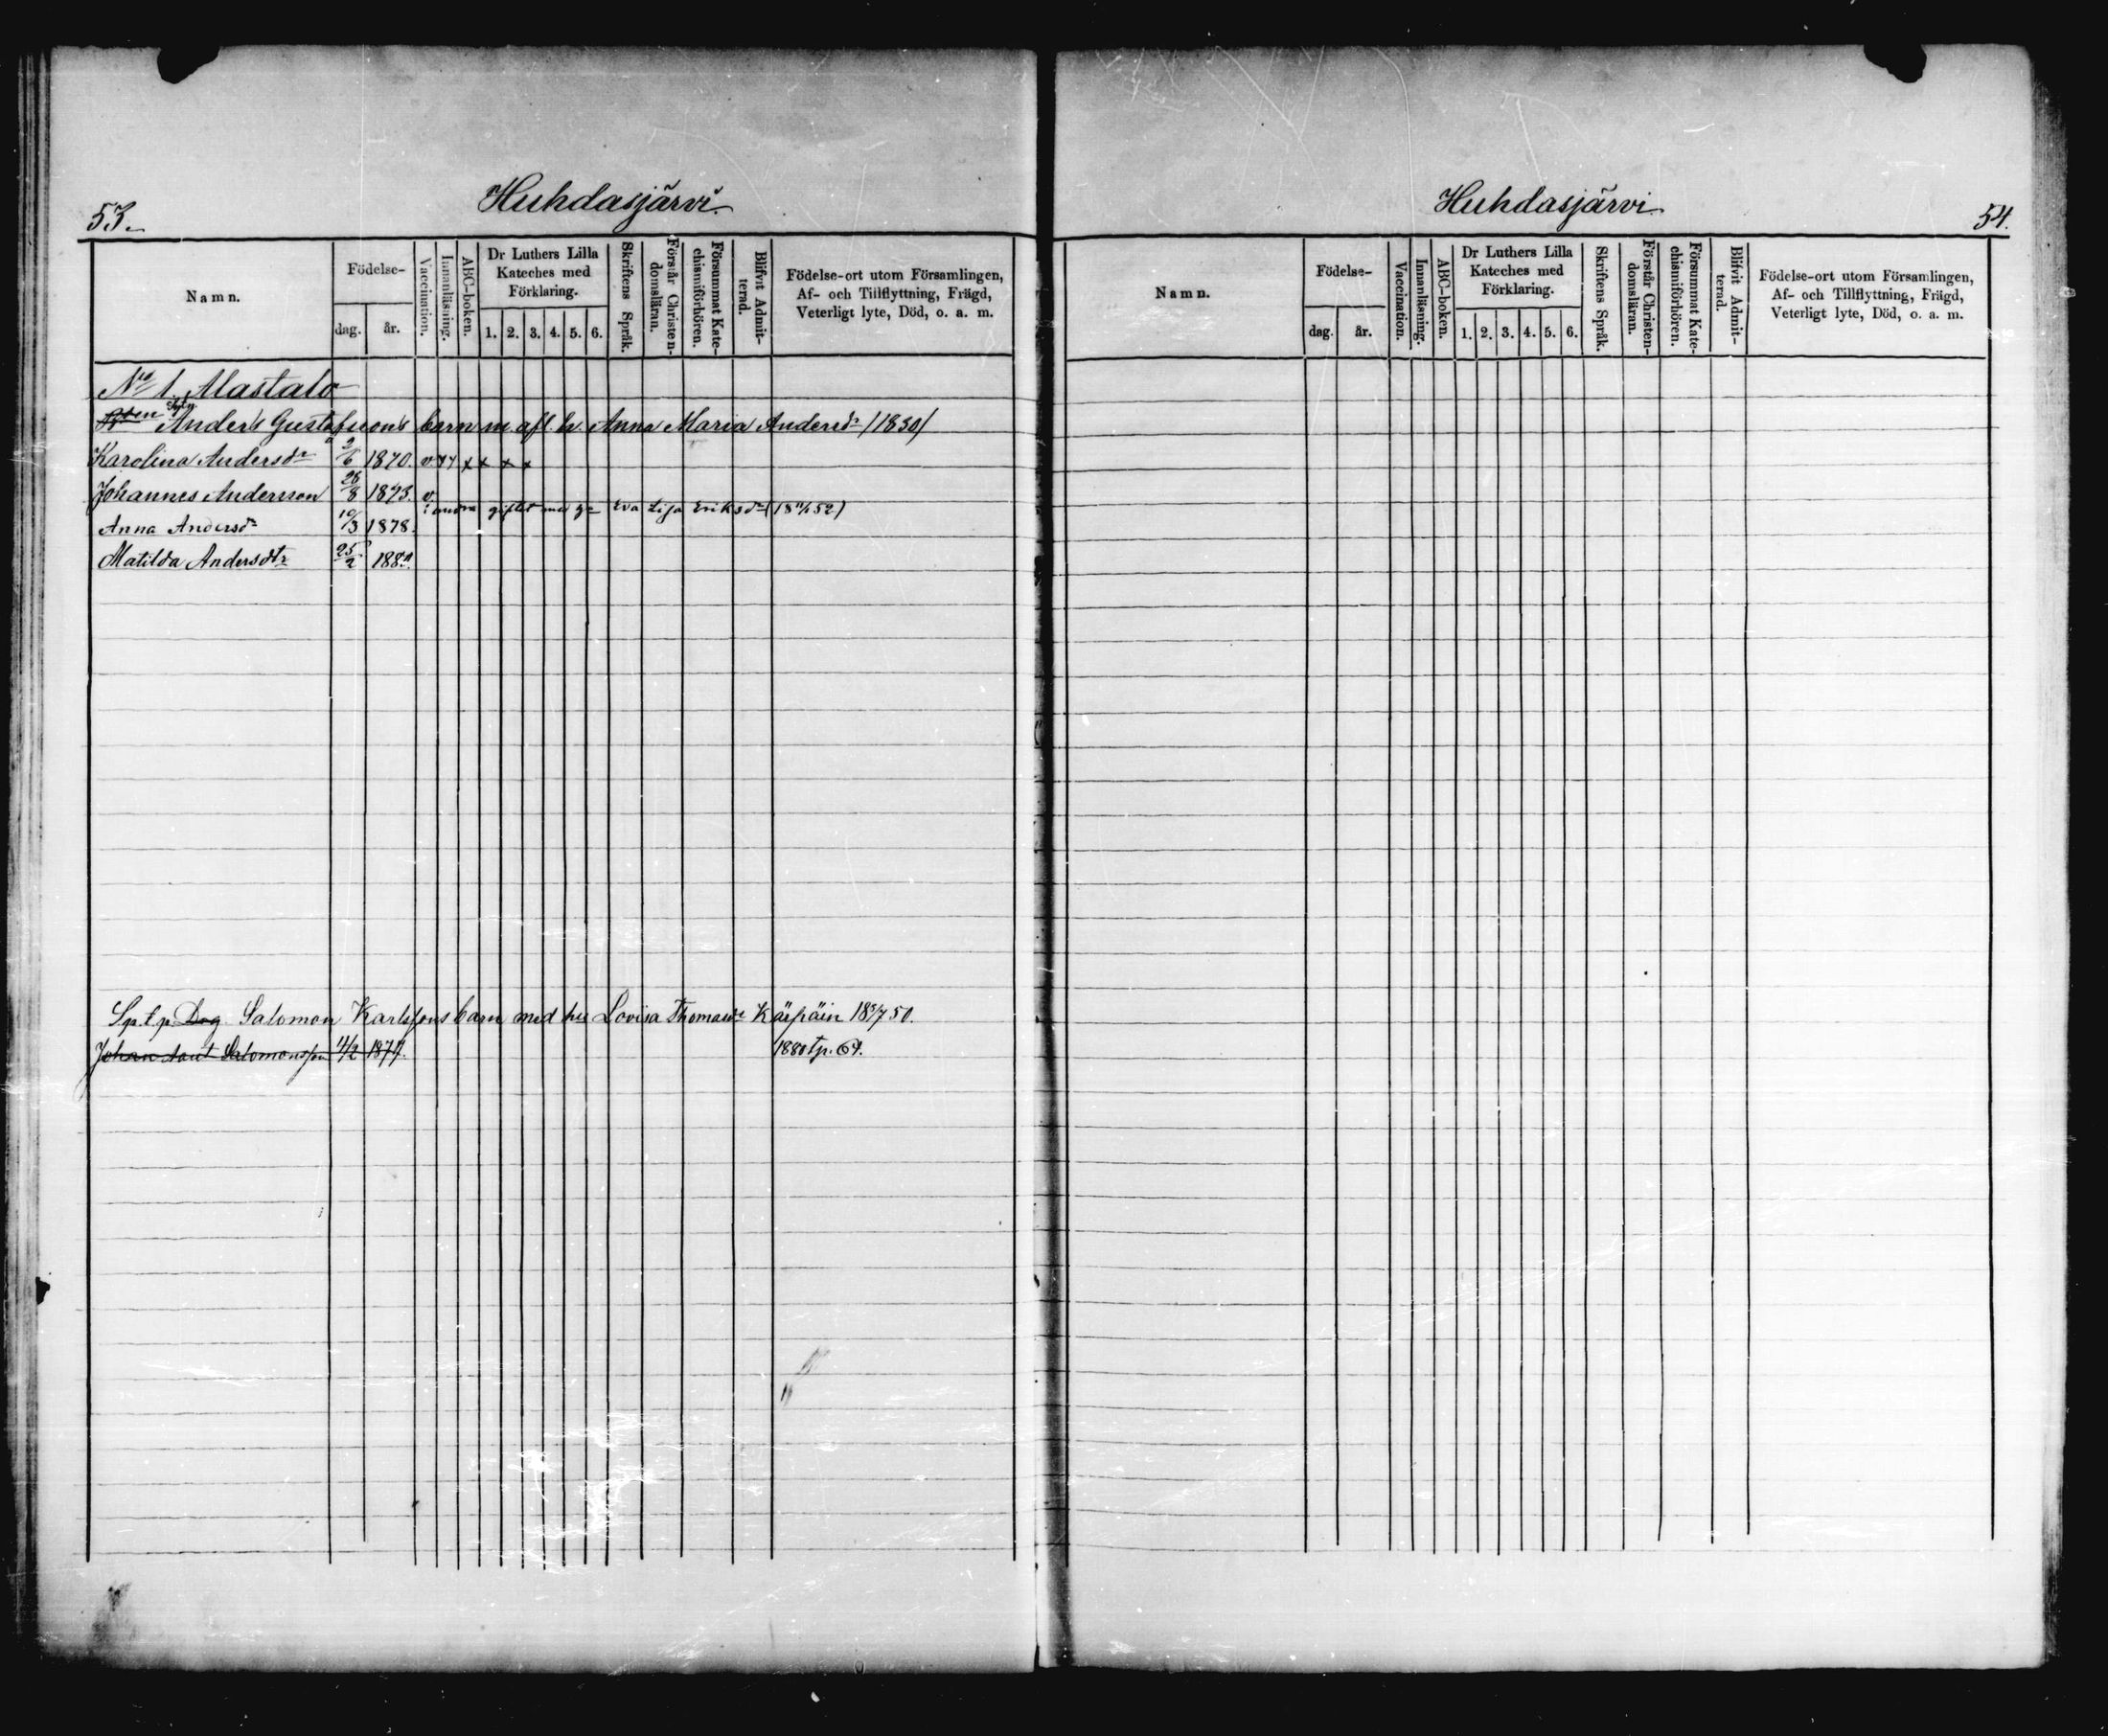 53.
Huhdasjärvi.
Namn.
Födelse-
dag.
år.
Vaccination.
Innanläsning.
ABC-boken.
Dr Luthers Lilla
Kateches med
Förklaring.
1. 2. 3. 4. 5. 6.
Skriftens Språk.
Förstår Christen-
domsläran.
Försummat Kate-
chismiförhören.
Blifvit Admit-
terad.
Födelse-ort utom Församlingen,
Af- och Tillflyttning, Frägd,
Veterligt lyte, Död, o. a. m.
No 1. Alastalo
Anders Gustafssons barn m. afl. h. Anna Maria Andersdr /1830/
Karolina Andersdr 2/6 1870. v
Johannes Andersson 26/8 1873. v
i andra giftet med h. Eva Lisa Eriksdr
Anna Andersdr 10/3 1878.
Matilda Andersdtr 25/2 188
Sp.t.p. Dog Salomon Karlssons barn med hu Lovisa Thomasdr Käepäin 18 5/7 50.
Johan Salomonsson 4/2 1877. 1880 tp. 64.
Huhdasjärvi
54.
Namn.
Födelse-
dag.
år.
Vaccination.
Innanläsning.
ABC-boken.
Dr Luthers Lilla
Kateches med
Förklaring.
1. 2. 3. 4. 5. 6.
Skriftens Språk.
Förstår Christen-
domsläran.
Försummat Kate-
chismiförhören.
Blifvit Admit-
terad.
Födelse-ort utom Församlingen,
Af- och Tillflyttning, Frägd,
Veterligt lyte, Död, o. a. m.